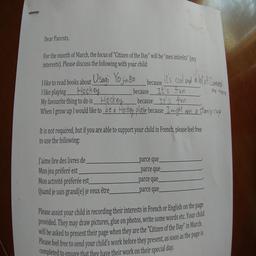 Dear Parents,
For the month of March, the focus of "Citizen of the Day" will be "mes intérêts" (my
interests). Please discuss the following with your child:
I like to read books about Usagi Yojimbo because it's cool and a bit
I like playing Hockey because It's fun
My favourite thing to do is Hockey because It's fun
When I grow up I would like to be a Hockey player because I might earn a
It is not required, but if you are able to support your child in French, please feel free
to use the following:
J'aime lire des livres de parce que
Mon jeu préféré est parce que
Mon activité préférée est parce que
Quand je suis grand(e) je veux être parce que
Please assist your child in recording their interests in French or English on the page
provided. They may draw pictures, glue on photos, write some words etc. Your child
will be asked to present their page when they are the "Citizen of the Day" in March.
Please feel free to send your child's work before they present, as soon as the page is
completed to ensure that they have their work on their special day.